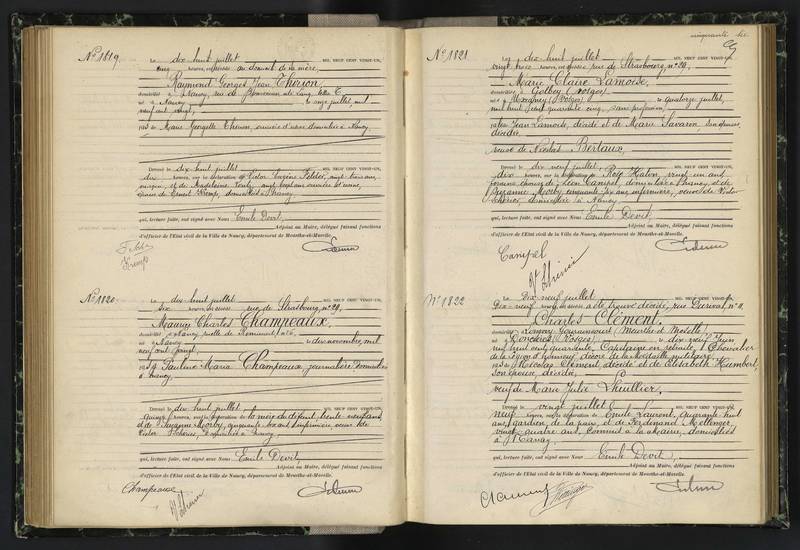 N° 1819.
Le dix-huit juillet MIL NEUF CENT VINGT-UN,
heures, est décédé au domicile de sa mère
Raymond Georges Jean Thérion,
domicilié à Nancy, rue de
né à Nancy le onze juillet, mil
neuf cent vingt,
fils de Marie Georgette Thérion, ouvrière d'usine domiciliée à Nancy
Dressé le dix-huit juillet MIL NEUF CENT VINGT-UN,
dix heures, sur la déclaration de Victor Eugène vingt-trois ans,
et de Madeleine vingt ans ouvrière d'usine,
domiciliés à Nancy
qui, lecture faite, ont signé avec Nous Emile Devit,
Adjoint au Maire, délégué faisant fonctions
d'officier de l'Etat civil de la Ville de Nancy, département de Meurthe-et-Moselle.
N° 1820.
Le dix-huit juillet MIL NEUF CENT VINGT-UN,
dix heures, est décédé rue de Strasbourg, n° 29,
Maurice Charles Champeaux,
domicilié à Nancy n° 6,
né à Nancy le novembre, mil
neuf cent vingt,
fils de Pauline Marie Champeaux journalière domiciliée
à Nancy.
Dressé le dix-huit juillet MIL NEUF CENT VINGT-UN,
quinze heures, sur la déclaration de la mère du défunt, trente ans,
et de Suzanne cinquante six ans infirmière, veuve de
Victor domiciliée à Nancy
qui, lecture faite, ont signé avec Nous Emile Devit,
Adjoint au Maire, délégué faisant fonctions
d'officier de l'Etat civil de la Ville de Nancy, département de Meurthe-et-Moselle.
Champeaux
cinquante
N° 1821
Le dix-huit juillet MIL NEUF CENT VINGT-UN,
vingt trois heures, est décédée rue de Strasbourg, n° 29,
Marie Claire Lamoise,
domiciliée à Golbey (Vosges)
née à (Vosges) le quatorze juillet,
mil huit cent quarante cinq, sans profession,
fille de Jean Lamoise, décédé et de Marie Savaron son épouse,
décédée
veuve de Nicolas Bertaux,
Dressé le dix-neuf juillet MIL NEUF CENT VINGT-UN,
dix heures, sur la déclaration de Rose Haton, vingt-un ans
épouse de Léon Campel, domiciliée à Nancy, et de
Suzanne cinquante six ans infirmière, veuve de Victor
domiciliée à Nancy
qui, lecture faite, ont signé avec Nous Emile Devit,
Adjoint au Maire, délégué faisant fonctions
d'officier de l'Etat civil de la Ville de Nancy, département de Meurthe-et-Moselle.
Campel
N° 1822
Le Dix-neuf juillet MIL NEUF CENT VINGT-UN,
Dix-neuf heures a été trouvé décédé, rue Durival, n° 11
Charles Clément.
domicilié à (Meurthe et Moselle)
né à (Vosges) le dix-neuf Juin
mil huit cent quarante, Capitaine en retraite, Chevalier
de la Légion d'honneur, décoré de la Médaille militaire,
fils de Nicolas Clément, décédé et de Elisabeth Humbert,
son épouse, décédée
veuf de Marie Julie Lhuillier.
Dressé le vingt juillet MIL NEUF CENT VINGT-UN,
neuf heures, sur la déclaration de Emile Laurent, quarante huit
ans, gardien de la paix, et de Ferdinand
vingt quatre ans, commis à la Mairie, domiciliés
à Nancy
qui, lecture faite, ont signé avec Nous Emile Devit,
Adjoint au Maire, délégué faisant fonctions
d'officier de l'Etat civil de la Ville de Nancy, département de Meurthe-et-Moselle.